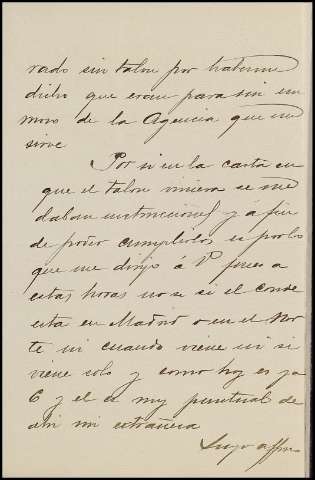 rado sin talon por haberme
dicho que eran para mi
mozo de la Agencia que me
sirve
Por si en la carta en
que el talon viniera se me
daban instrucciones y á fin
de poder cumplirlas es por lo
que me dirijo á V pues a
estas horas no se si el conde
esta en Madrid o en el Nor
te ni cuando viene ni si
viene solo y como hoy es ya
6 y el es muy puntual de
ahi mi extrañeza
Suyo affmo